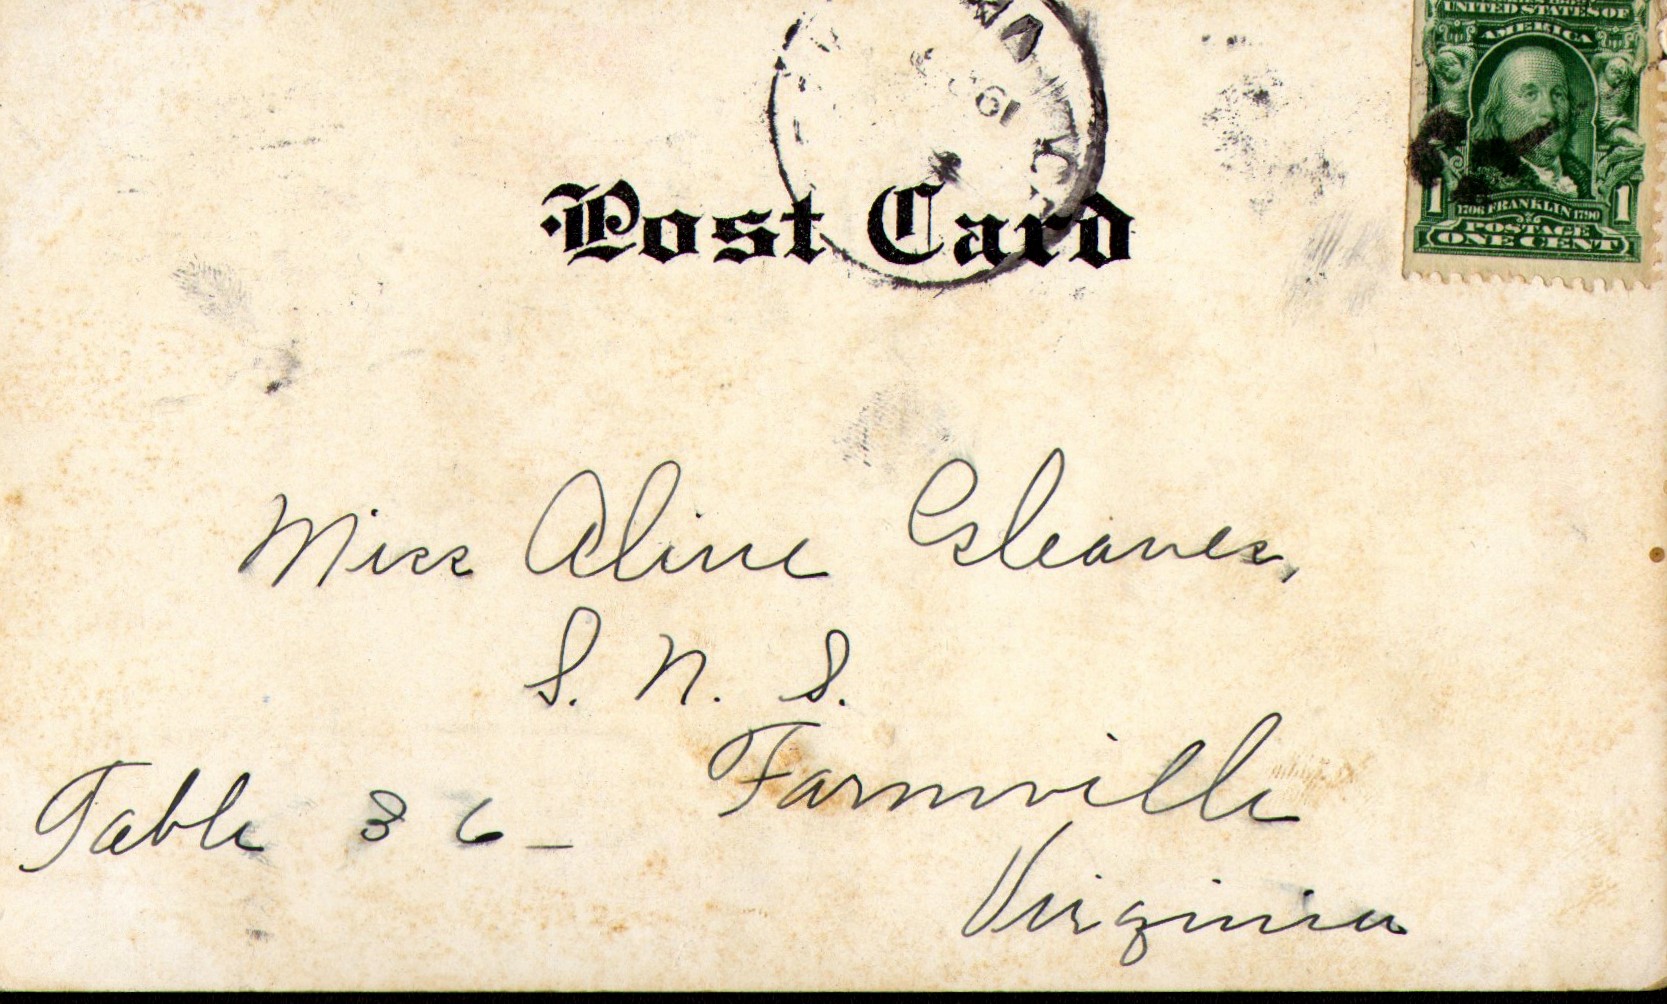 UNITED STATES OF
AMERICA
1 1706 FRANKLIN 1790 1
POSTAGE
ONE CENT
VA
Post Card
Miss Aline Gleaves,
S. N. S.
Farmville
Table 36 —
Virginia